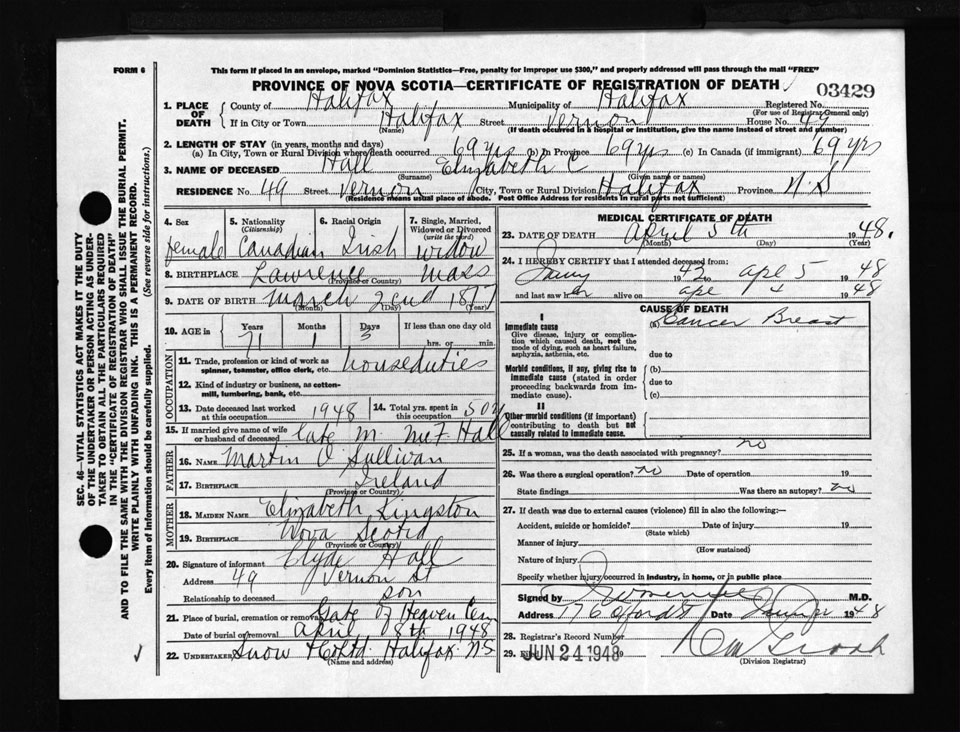 FORM 6
This form if placed in an envelope, marked "Dominion Statistics—Free, penalty for improper use $300," and properly addressed will pass through the mail "FREE"
PROVINCE OF NOVA SCOTIA—CERTIFICATE OF REGISTRATION OF DEATH
03429
1. PLACE OF DEATH County of Halifax Municipality of Halifax Registered No.
(For use of Registrar General only)
If in City or Town Halifax Street Vernon House No. 49
(Name) (If death occurred in a hospital or institution, give the name instead of street and number)
2. LENGTH OF STAY (in years, months and days)
(a) In City, Town or Rural Division where death occurred 69 yrs (b) In Province 69 yrs (c) In Canada (if immigrant) 69 yrs
3. NAME OF DECEASED Hall Elizabeth C
(Surname) (Given name or names)
RESIDENCE No. 49 Street Vernon City, Town or Rural Division Halifax Province N.S
(Residence means usual place of abode. Post Office Address for residents in rural parts not sufficient)
4. Sex female
5. Nationality (Citizenship) Canadian
6. Racial Origin Irish
7. Single, Married, Widowed or Divorced (write the word) Widow
8. BIRTHPLACE Lawrence Mass
(Province or Country)
9. DATE OF BIRTH March 22nd 1877
(Month) (Day) (Year)
10. AGE in Years 71 Months 1 Days 3 If less than one day old
hrs. or min.
OCCUPATION
11. Trade, profession or kind of work as spinner, teamster, office clerk, etc. houseduties
12. Kind of industry or business, as cotton-mill, lumbering, bank, etc.
13. Date deceased last worked at this occupation 1948
14. Total yrs. spent in this occupation 50 y
15. If married give name of wife or husband of deceased late M. McF. Hall
FATHER
16. NAME Martin O Sullivan
17. BIRTHPLACE Ireland
(Province or Country)
MOTHER
18. MAIDEN NAME Elizabeth Kingston
19. BIRTHPLACE Nova Scotia
(Province or Country)
20. Signature of informant Clyde Hall
Address 49 Vernon St
Relationship to deceased son
21. Place of burial, cremation or removal Gate of Heaven Cem
Date of burial or removal April 8th 1948
22. UNDERTAKER Snow & Co Ltd. Halifax N.S
(Name and address)
MEDICAL CERTIFICATE OF DEATH
23. DATE OF DEATH April 5th 1948.
(Month) (Day) (Year)
24. I HEREBY CERTIFY that I attended deceased from:
1942 ape 5 1948
and last saw her alive on ape 4 1948
CAUSE OF DEATH
I
Immediate cause (a) Cancer Breast
Give disease, injury or complication which caused death, not the mode of dying, such as heart failure, asphyxia, asthenia, etc.
due to
Morbid conditions, if any, giving rise to immediate cause (stated in order proceeding backwards from immediate cause).
(b)
due to
(c)
II
Other morbid conditions (if important) contributing to death but not causally related to immediate cause.
25. If a woman, was the death associated with pregnancy? no
26. Was there a surgical operation? no Date of operation 19
State findings Was there an autopsy? no
27. If death was due to external causes (violence) fill in also the following:—
Accident, suicide or homicide? Date of injury 19
(State which)
Manner of injury
(How sustained)
Nature of injury
Specify whether injury occurred in industry, in home, or in public place
Signed by M.D.
Address 176 Date 1948
28. Registrar's Record Number
29. Filed JUN 24 1948
(Division Registrar)
SEC. 46—VITAL STATISTICS ACT MAKES IT THE DUTY
OF THE UNDERTAKER OR PERSON ACTING AS UNDER-
TAKER TO OBTAIN ALL THE PARTICULARS REQUIRED
IN THE "CERTIFICATE OF REGISTRATION OF DEATH"
AND TO FILE THE SAME WITH THE DIVISION REGISTRAR WHO SHALL ISSUE THE BURIAL PERMIT.
WRITE PLAINLY WITH UNFADING INK. THIS IS A PERMANENT RECORD.
Every item of information should be carefully supplied. (See reverse side for instructions.)